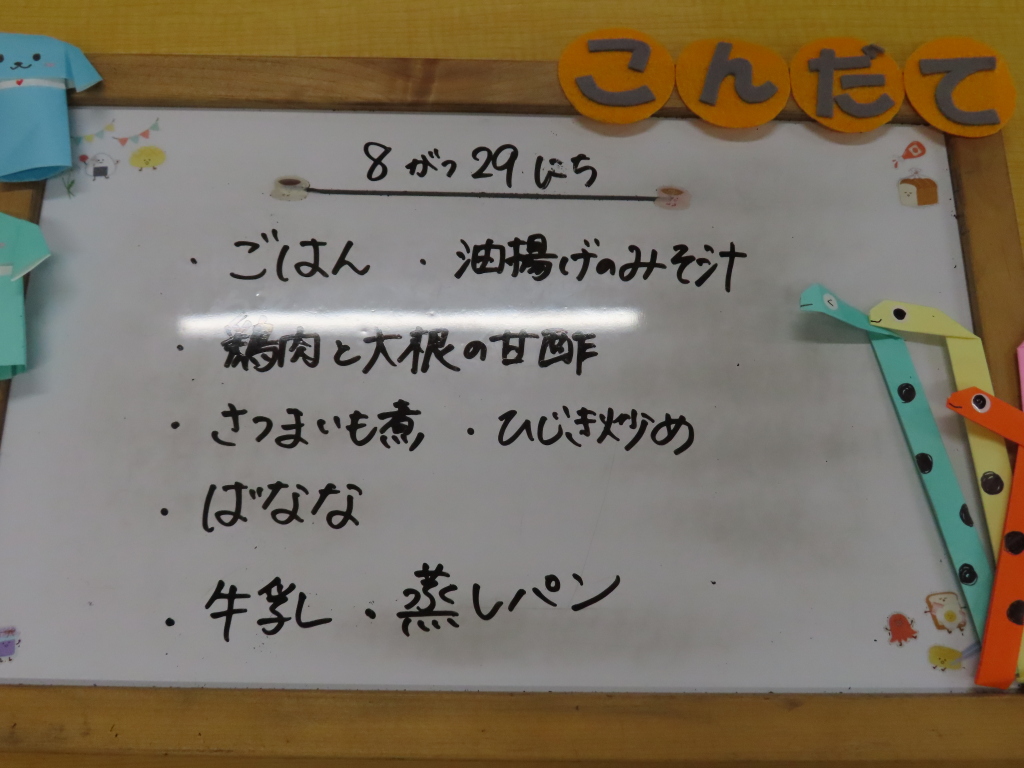 こんだて
8がつ29にち
・ごはん ・油揚げのみそ汁
・鶏肉と大根の甘酢
・さつまいも煮 ・ひじき炒め
・ばなな
・牛乳 ・蒸しパン